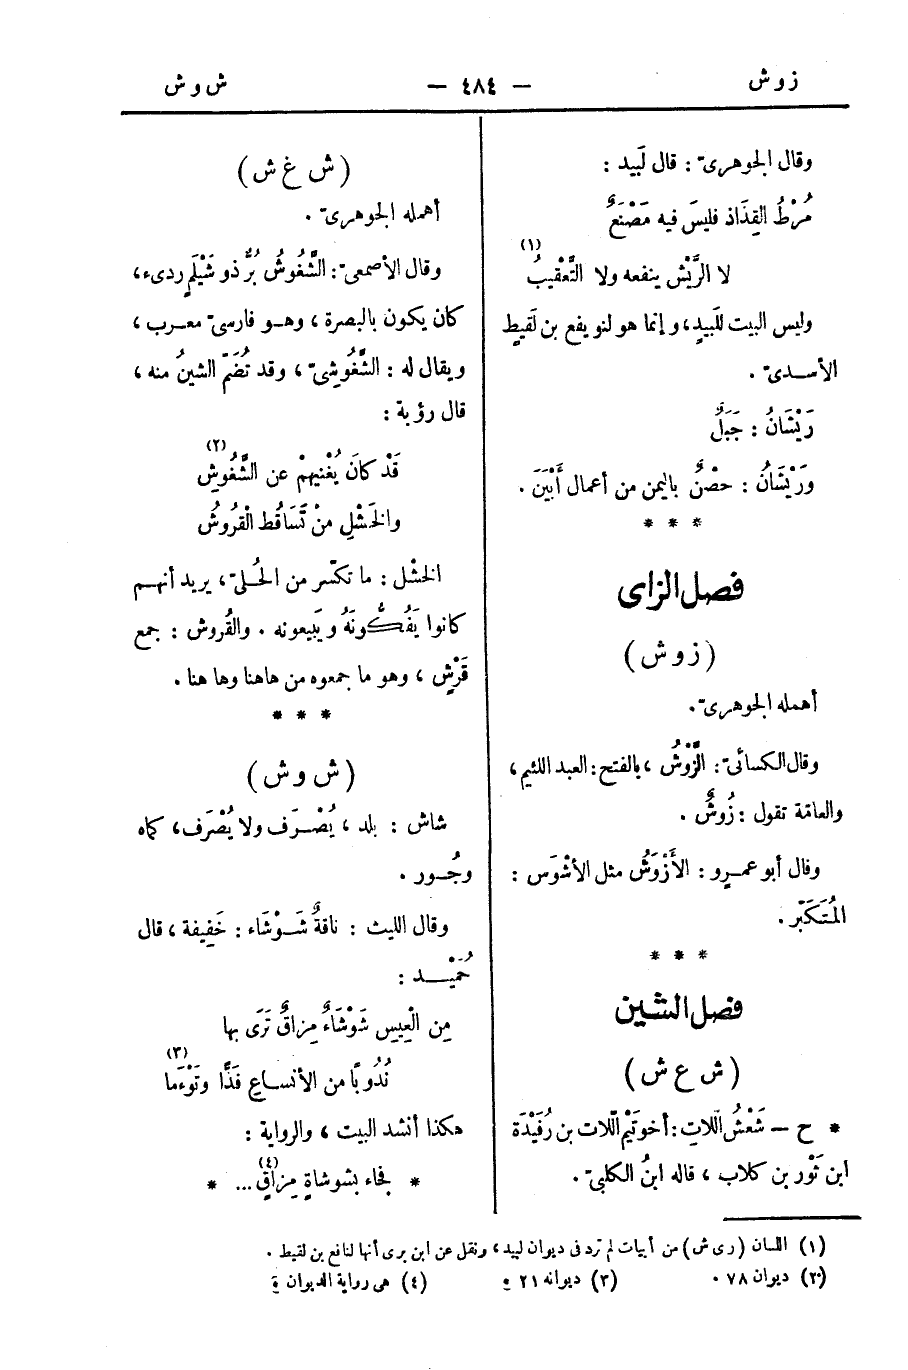 زوش
— ٤٨٤ —
ش وش
وقال الجوهرىّ : قال لَبيد :
مُرْطُ القِذَاذ فليسَ فيه مَصْنَعٌ
لا الرَّيْش ينفعه ولا التَّعْقيبُ (١)
وليس البيت للَبيدٍ، وإنما هو لنويفع بن لَقيطٍ
الأسدىّ .
رَيْشَانُ : جَبَلٌ
وَرَيْشَانُ : حصْنٌ باليمن من أعمال أَبْيَنَ .
* * *
فصل الزاى
( زوش )
أهمله الجوهرىّ .
وقال الكسائىّ : الزَّوْشُ ، بالفتح : العبد اللئيم ،
والعامّة تقول : زُوشٌ .
وقال أبو عمرٍو : الأَزْوَشُ مثل الأشْوَس :
المُتَكَبّر .
* * *
فصل الشين
( ش ع ش )
* ح — شَعْشُ اللّاتِ : أخو تَيْم اللّات بن رُفَيْدَة
ابن ثَوْر بن كلاب ، قاله ابنُ الكلبىّ .
( ش غ ش )
أهمله الجوهرىّ .
وقال الأصمعىّ : الشَّغُوشُ بُرٌّ ذو شَيْلَمٍ ردىء ،
كان يكون بالبصرة ، وهو فارسىّ معرب ،
ويقال له : الشَّغُوشِىّ ، وقد تُضَمّ الشينُ منه ،
قال رؤبة :
قَدْ كانَ يُغْنيهمْ عن الشَّغُوشِ (٢)
والخَشْلِ منْ تَسَاقُط الْقُروُشُ
الخشْل : ما تكسّر من الحُلىّ ، يريد أنهم
كانوا يَفُكُّونَهُ ويَبيعونه . والقُروش : جمع
قَرْشٍ ، وهو ما جمعوه من هاهنا وها هنا .
* * *
( ش وش )
شاش : بلد ، يُصْرَف ولا يُصْرَف ، كماه
وجُور .
وقال الليث : ناقةٌ شَوْشَاء : خَفِيفة ، قال
حُمَيْد :
مِن الْعِيسِ شَوْشَاءٌ مِزاقٌ تَرَى بها
نُدُوبًا من الأنساعِ فَذًّا وتَوْءَما (٣)
هكذا أنشد البيت ، والرواية :
* فجاء بشوشاةٍ مِزاقٍ (٤) ... *
(١) اللسان (رى ش) من أبيات لم ترد فى ديوان لبيد ، ونقل عن ابن برى أنها لنافع بن لقيط .
(٢) ديوان ٧٨ .
(٣) ديوانه ٢١
(٤) هى رواية الديوان